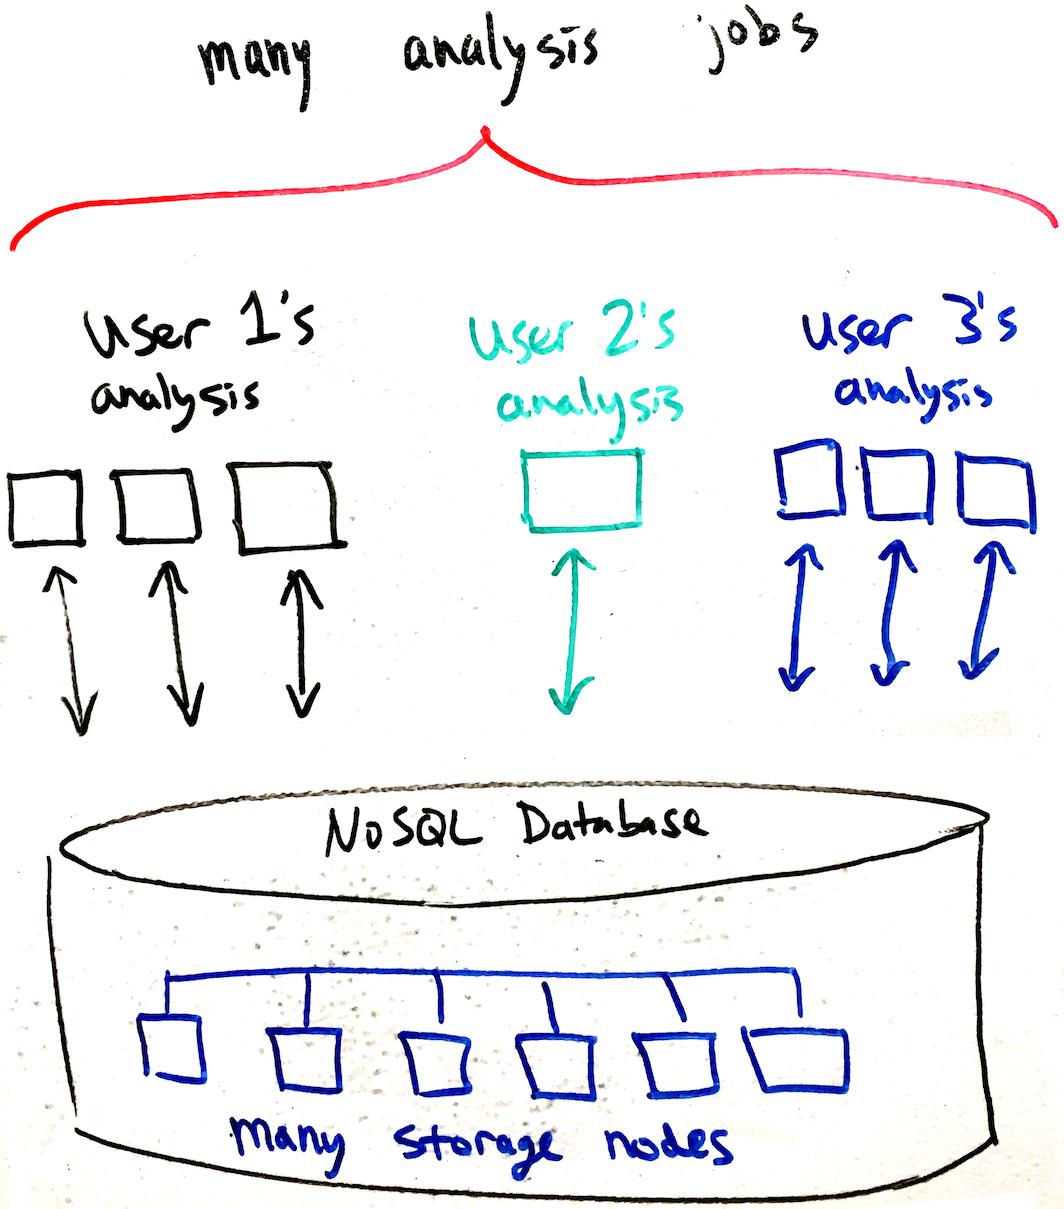 many analysis jobs
user 1's
analysis
user 2's
analysis
user 3's
analysis
NoSQL Database
many storage nodes